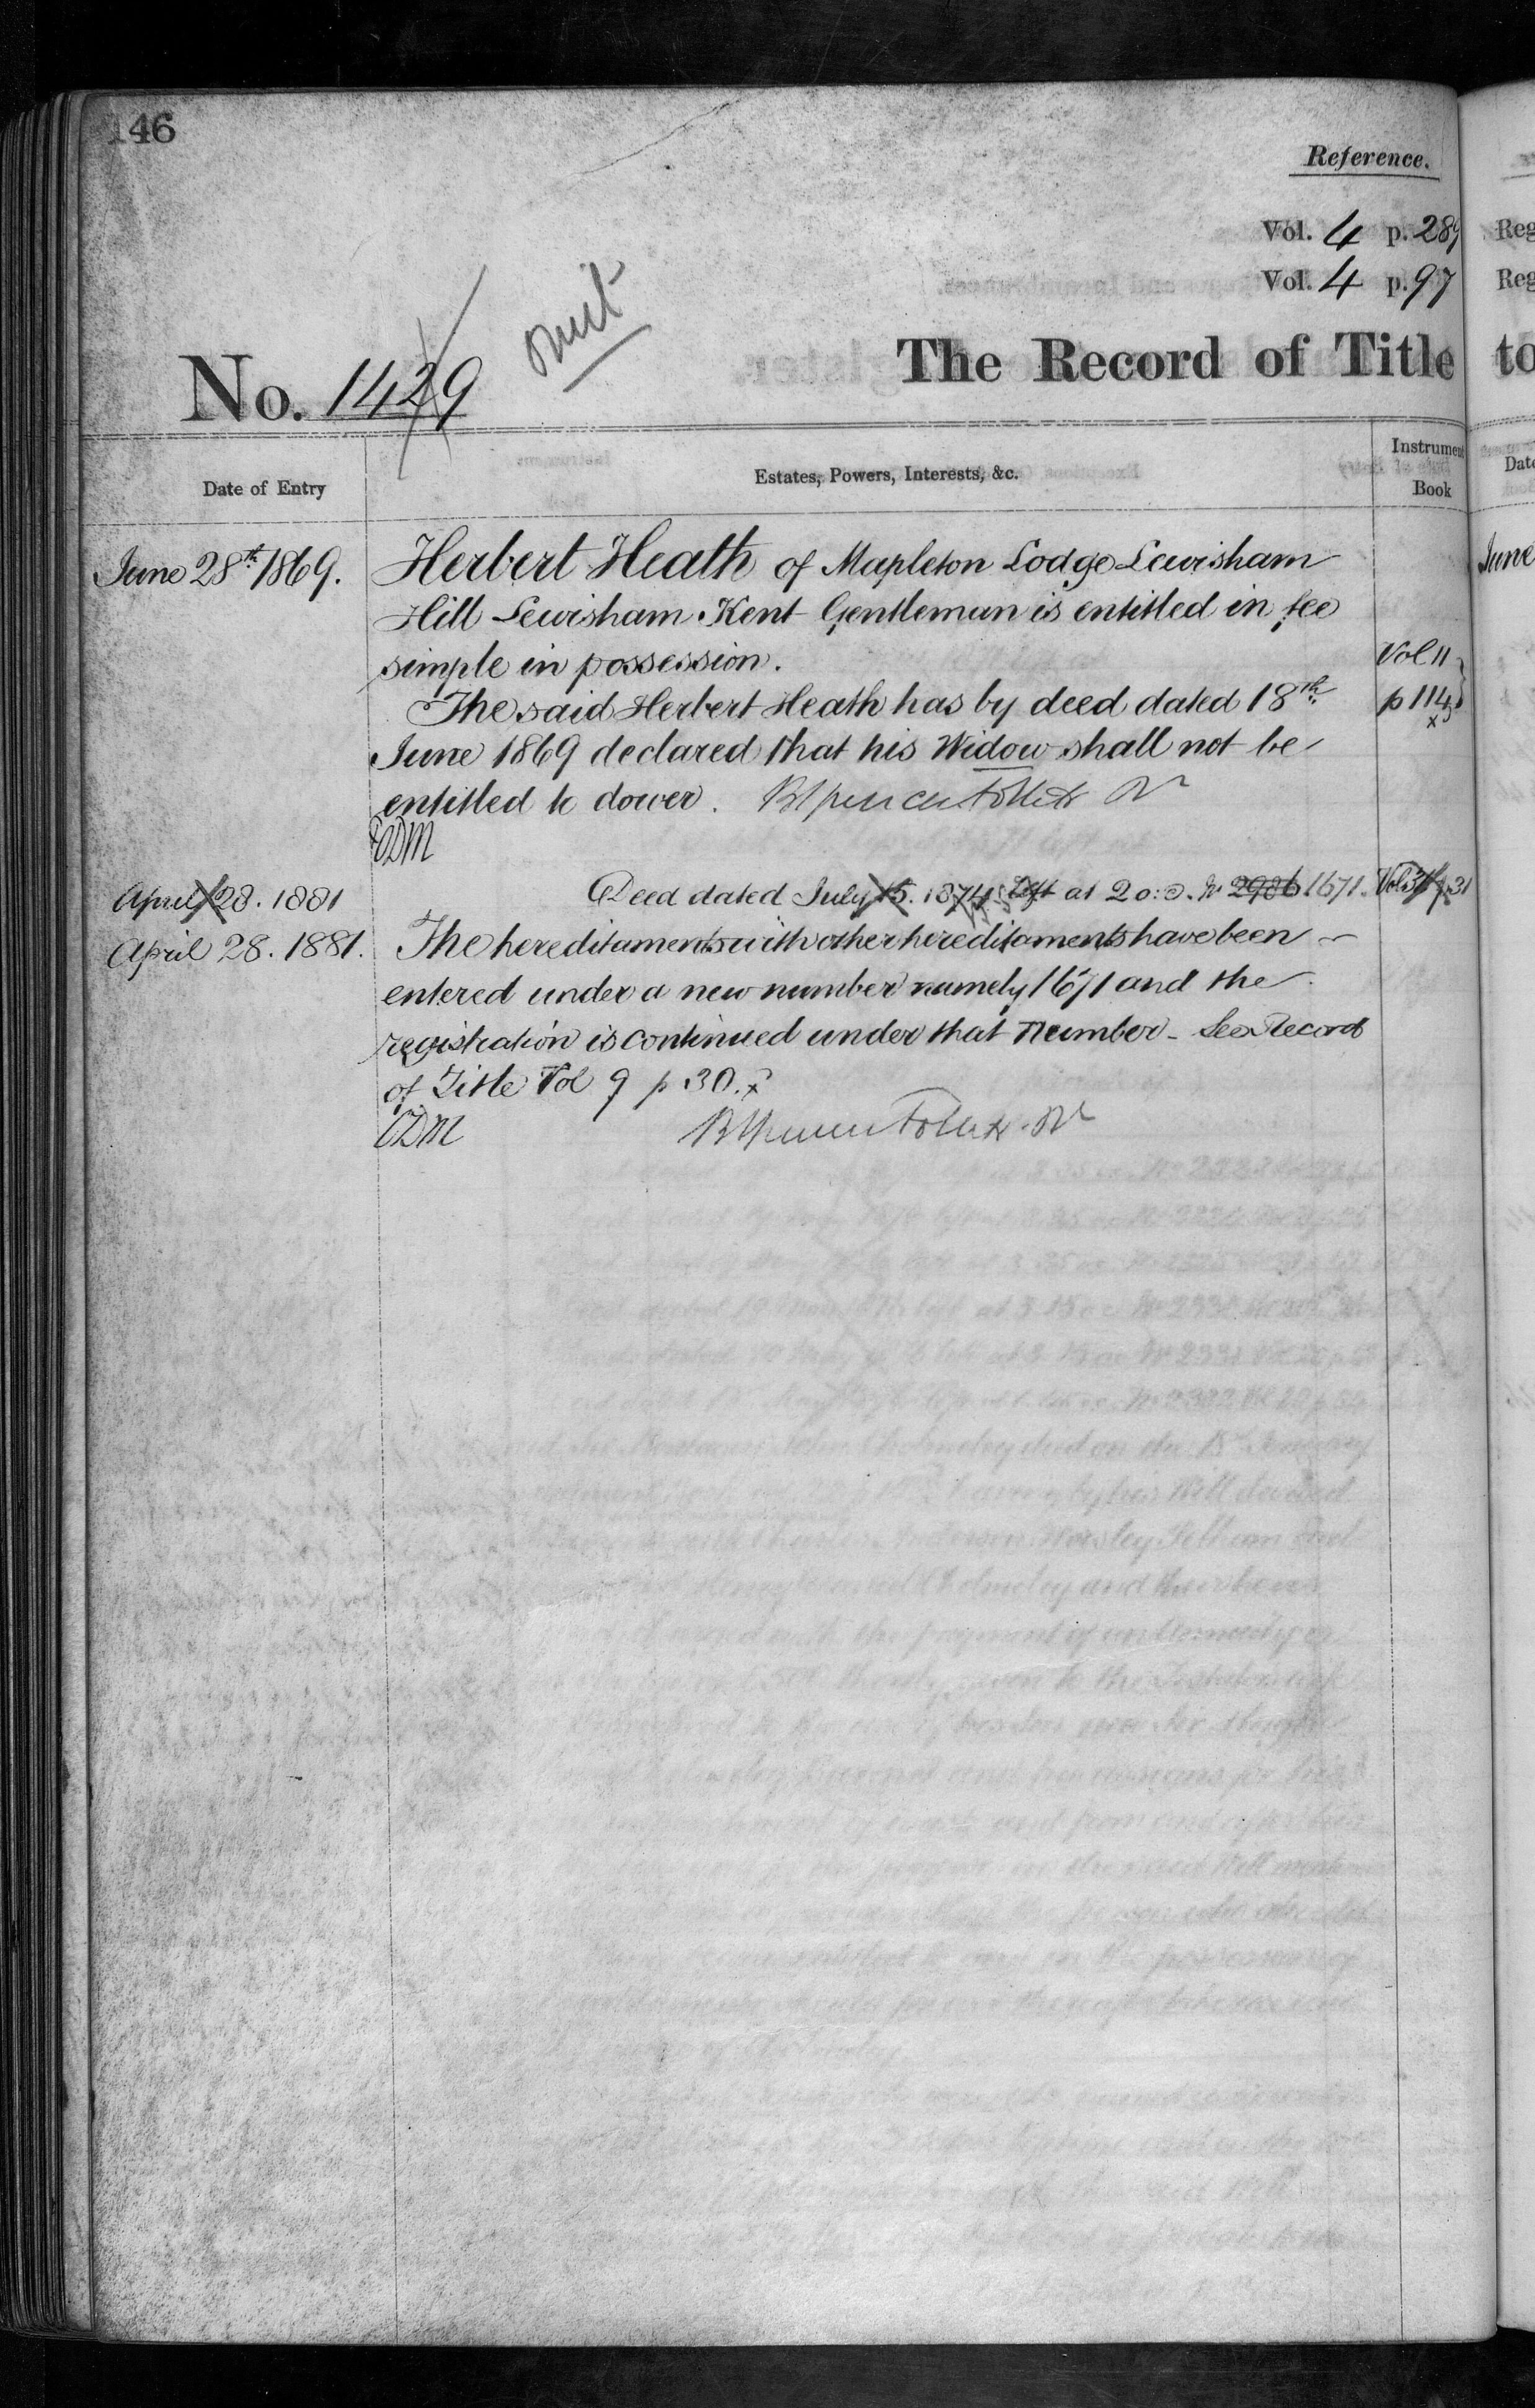 146
Reference.
Vol. 4 p. 289
Vol. 4 p. 97
omit
No. 1429
The Record of Title
Date of Entry
Estates, Powers, Interests, &c.
Instrument Book
June 28th 1869.
Herbert Heath of Mapleton Lodge Lewisham
Hill Lewisham Kent Gentleman is entitled in fee
simple in possession.
Vol 11
The said Herbert Heath has by deed dated 18th
p 114
June 1869 declared that his Widow shall not be
entitled to dower.
April 28. 1881
Deed dated July 15. 1874 Left at 2 o:c. No 2986 1671. Vol 31 p 31
April 28. 1881.
The hereditaments with other hereditaments have been
entered under a new number namely 1671 and the
registration is continued under that number - See Record
of Title Vol 9 p 30.
to
Reg
Reg
Date
June